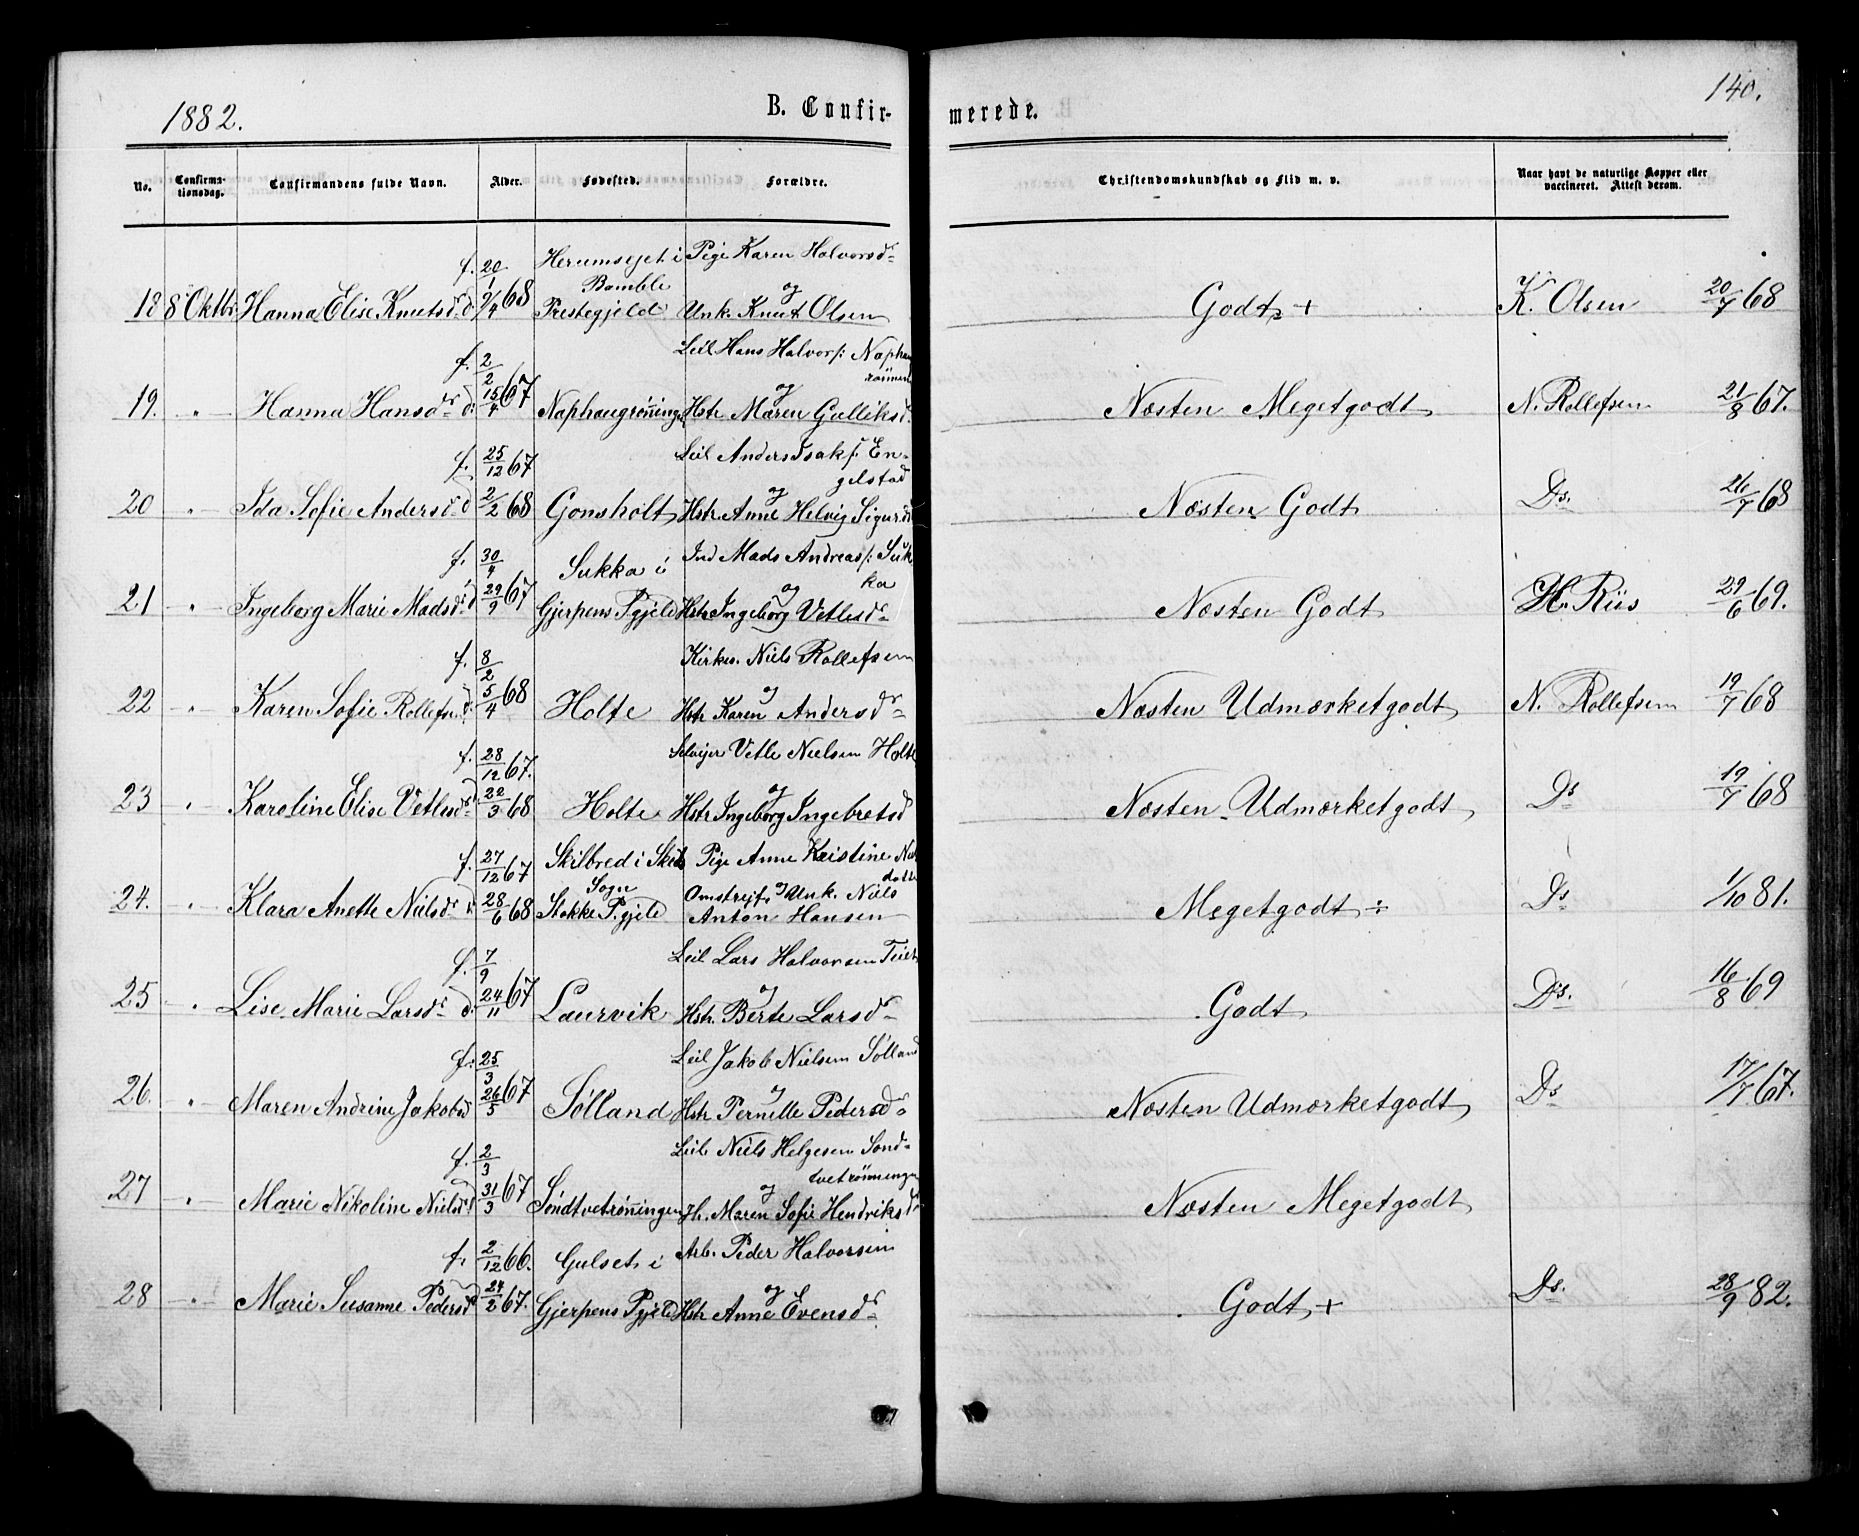 1882.
B. Confir-
merede.
140.
No.
Confirma-
tionsdag.
Confirmandens fulde Navn.
Alder.
Fødested.
Forældre.
Christendomskundskab og Flid m. v.
Naar havt de naturlige Kopper eller
vaccineret. Attest derom.
f. 20/1 Herumsejet i Pige Karen Halvorsdr
Bamble og
18 8 Oktbr. Hanna Elise Knutsdr d. 9/4 68 Prestegjeld Unk. Knut Olsen Godt + K. Olsen 20/7 68
f. 2/2 Leil Hans Halvors: Naphau
rønnin
og
19. -"- Hanna Hansdr d. 15/4 67 Naphaugrønningen Hstr. Maren Gulliksd. Næsten Megetgodt N. Rollefsen 21/8 67.
f. 25/12 67 Leil Anders Isaks: En-
gelstad
og
20 -"- Ida Sofie Andersdr d 2/2 68 Gonsholt Hstr Anne Helvig Sigurdsd Næsten Godt Ds. 26/7 68
f. 30/4 Sukka i Ind Mads Andreas: Suk
ka
og
21 -"- Ingeborg Marie Madsdr d 29/9 67 Gjerpens Pgjeld Hstr Ingeborg Vetlesdr Næsten Godt H. Riis 29/6 69.
f. 8/2 Kirkes. Niels Rollefsen
og
22 -"- Karen Sofie Rollefsen d. 5/4 68 Holte Hstr Karen Andersdr Næsten Udmærketgodt N. Rollefsen 19/7 68
f. 28/12 67. Selvejer Vetle Nielsen Holte
og
23 -"- Karoline Elise Vetlesdr d. 22/3 68 Holte Hstr Ingeborg Ingebretsd Næsten Udmærketgodt Ds 19/7 68
f. 27/12 67 Skilbred i Skee Pige Anne Kristine
datter
Sogn Omstrejf. og Unk. Niels
24. -"- Klara Anette Nielsdr d. 28/6 68 Stokke Pgjeld Anton Hansen Megetgodt ÷ Ds 1/10 81.
f. 7/9 Leil Lars Halvorsen
og
25 -"- Lise Marie Larsdr d. 24/11 67 Laurvik Hstr. Berte Larsdr Godt Ds. 16/8 69
f. 25/3 Leil Jakob Nielsen Sølland
og
26. -"- Maren Andrine Jakobsd 26/5 67 Sølland Hstr Pernille Pedersdr Næsten Udmærketgodt Ds 17/7 67.
f. 2/3 Leil. Niels Helgesen Sønd-
tvetrønningen
og
27 -"- Marie Nikoline Nielsdr d 31/3 67 Søndtvetrønningen H. Maren Sofie Hendriksdr Næsten Megetgodt
f. 2/12 66. Gulset i Arb. Peder Halvorsen
og
28 -"- Marie Susanne Pedersdr d 24/2 67. Gjerpens Pgjeld Hstr Anne Evensdr Godt + Ds. 28/9 82.